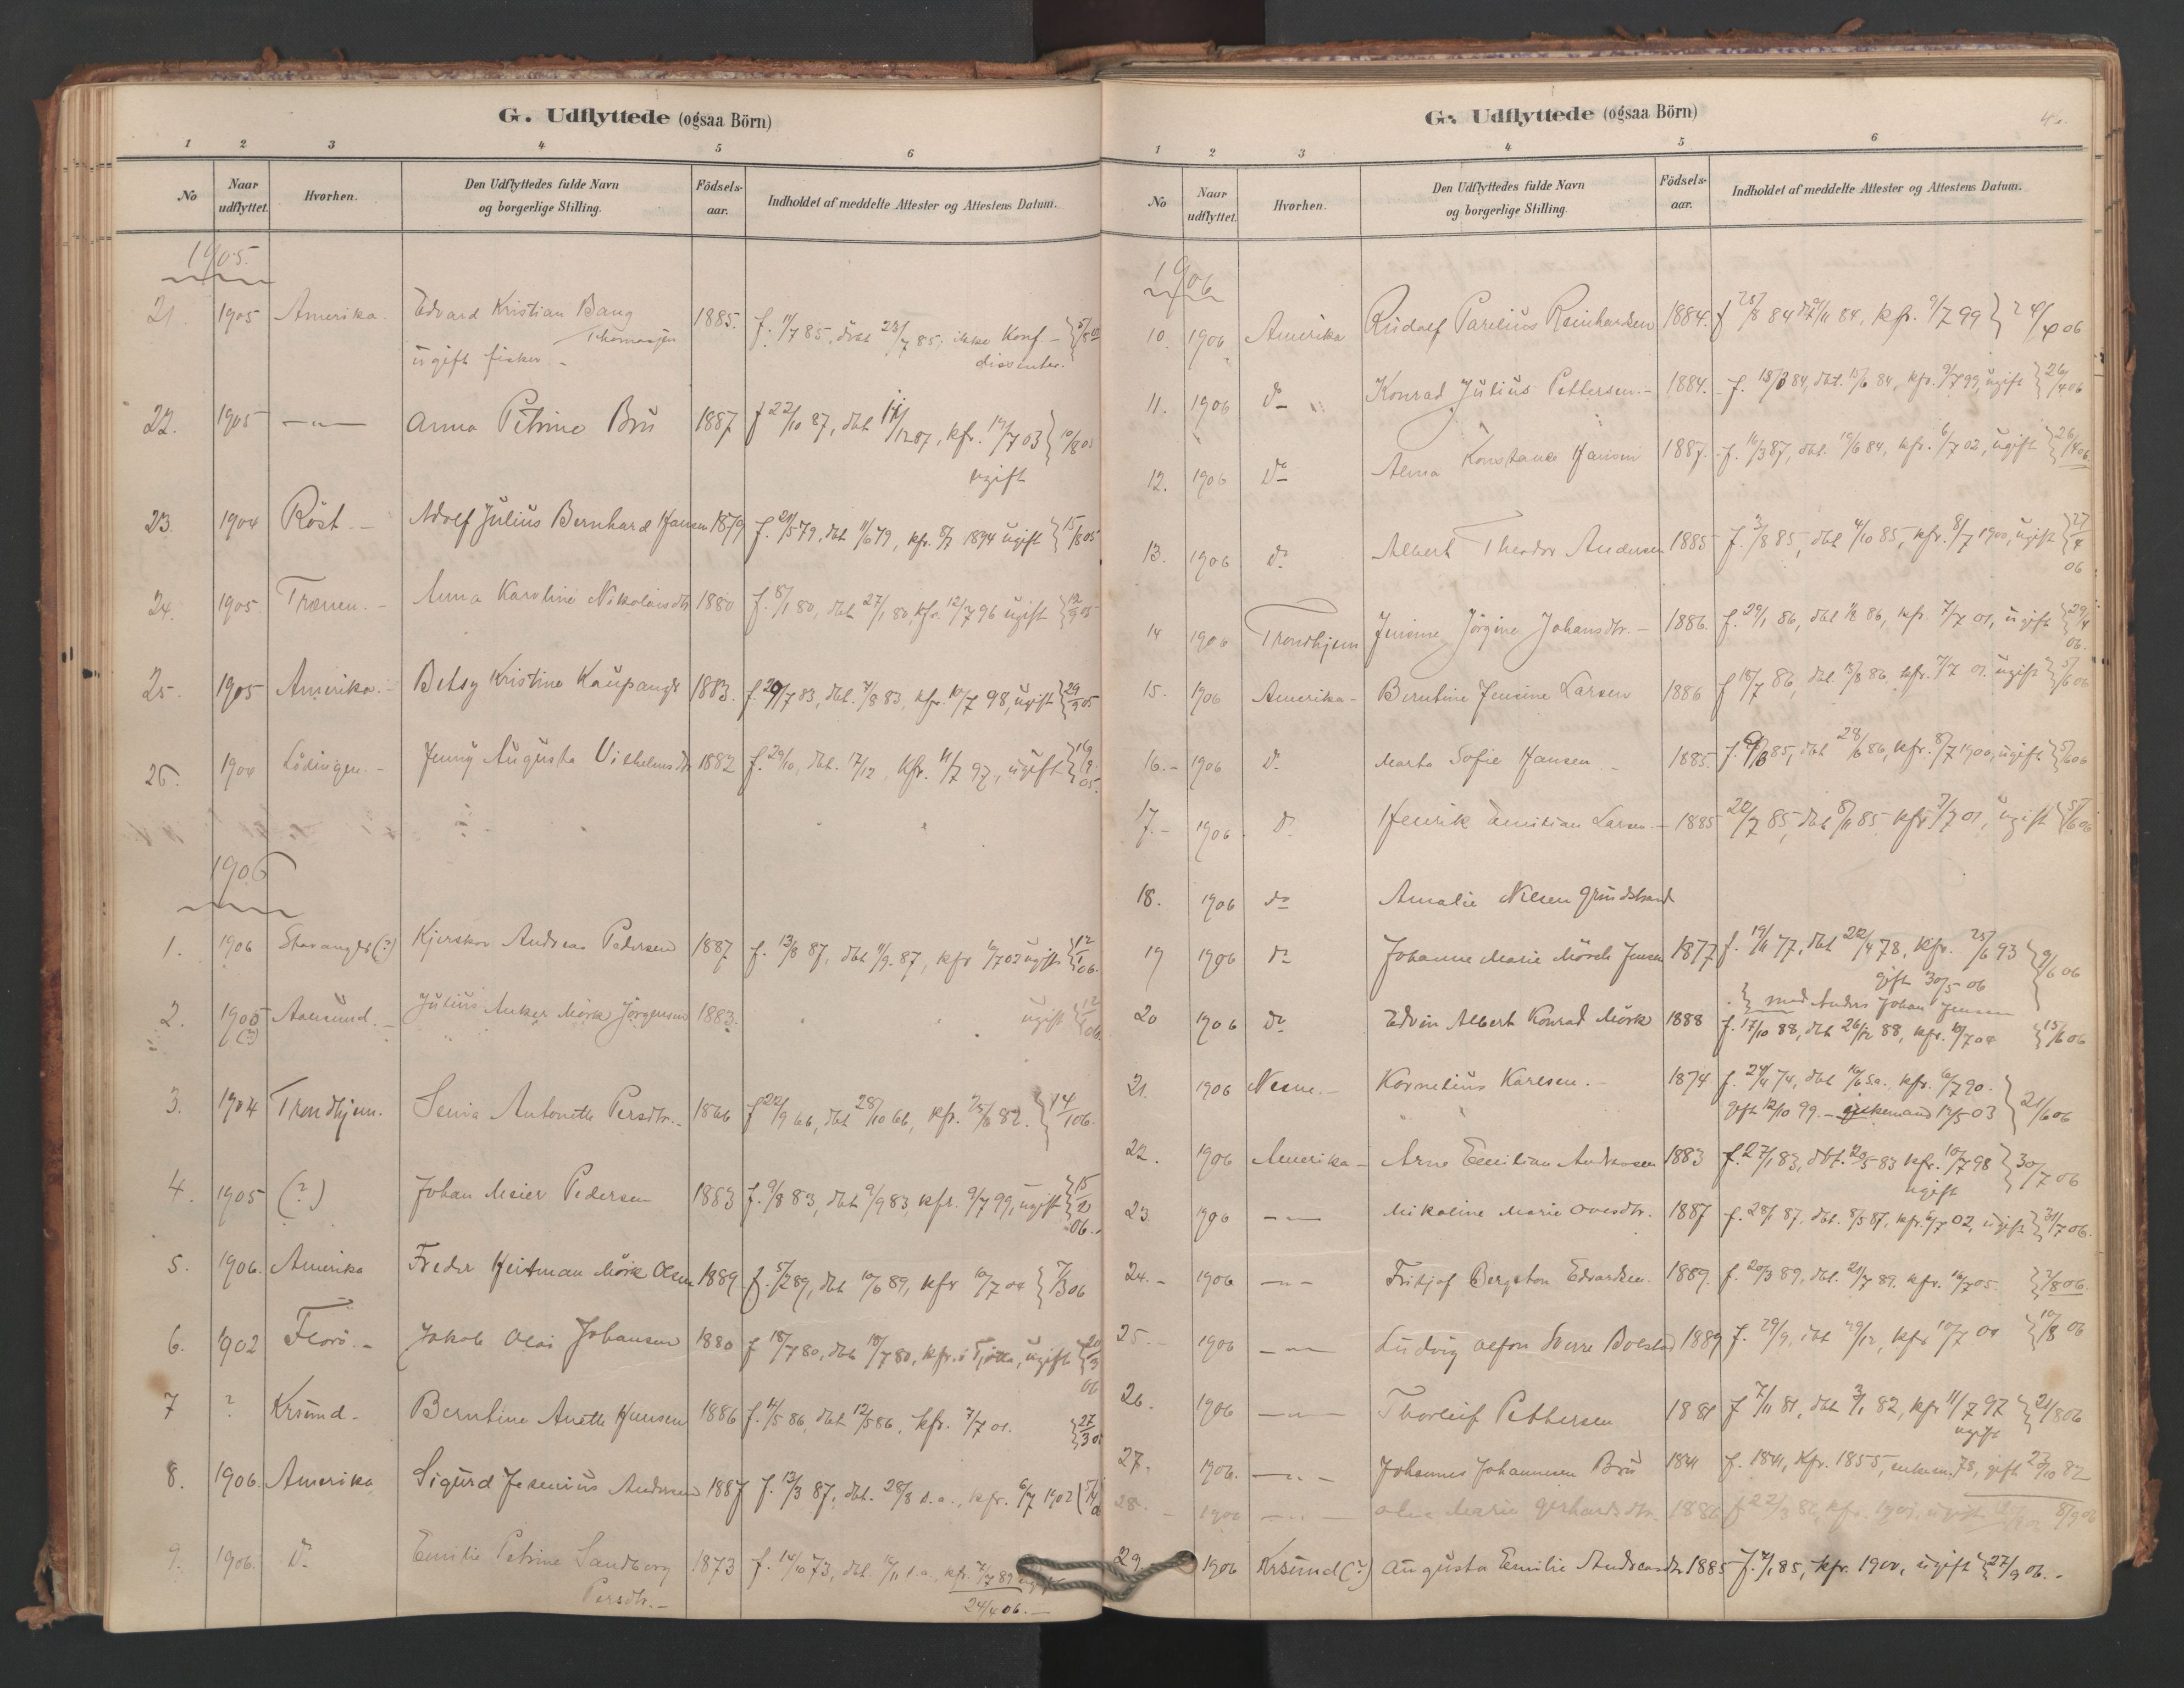 G. Udflyttede (ogsaa Börn)
1 2 3 4 5 6
No Naar udflyttet. Hvorhen. Den Udflyttedes fulde Navn og borgerlige Stilling. Födsels-aar. Indholdet af meddelte Attester og Attestens Datum.
1905.
21. 1905 Amerika. Edvard Kristian Bang 1885. f. 11/7 85, döbt 23/7 85; ikke Konf –
Thomassen
ugift fisker. – dissenter.
22. 1905 —„— Anna Petrine Brü 1887 f 22/10 87, dbt /12 87, kfr. 12/7 03 } 10/8 05
ugift
23. 1904 Röst. – Adolf Julius Bernhard Hansen 1879 f. 21/5 79, dbt 11/6 79, kfr. 8/7 1894 ugift } 15/8 05
24. 1905. Trænen. – Anna Karoline Nikolaisdtr 1880 f. 8/1 80, dbt 27/1 80, kfr. 12/7 96 ugift } 12/9 05
25. 1905 Amerika. – Betsy Kristine Kaupangr 1883. f. 29/7 83, dbt. 7/8 83, kfr. 10/7 98, ugift } 29/9 05
26. 1904 Lödingen. – Jenny Augusta Vilhelmsdtr 1882 f. 29/10, dbt. 17/12, kfr. 11/7 97, ugift } 05.
1906
1. 1906 Stavanger (?) Andreas Pedersen 1887 f. 13/8 87, dbt 11/9. 87, kfr 6/7 02 ugift } 12/1 06.
2. 1905 (?) Aalesund. – Julius Anker Mörk Jörgensen 1883. ugift } 12/1 06.
3. 1904 Trondhjem. Antonette Persdtr. – 1866 f 22/9 66, dbt 28/10 66, kfr. 25/6 82. } 14/1 06.
4. 1905 (?) Johan Meier Pedersen 1883 f. 9/8 83, dbt 9/9 83, kfr. 9/7 99, ugift } 15/2 06.
5. 1906. Amerika Heitman Mörk Olsen 1889 f. 5/2 89, dbt 10/6 89, kfr 10/7 04 } 7/3 06
6. 1902 Florö. – Jakob Olai Johansen 1880 f 18/7 80, dbt 18/7 80, kfr. i Tjötta, ugift } 20/3 06
7 ? Krsund. Berntine Anette Hansen 1886 f. 14/5 86, dbt 12/5 86, kfr. 7/7 01. } 27/3 0
8. 1906. Amerika Sigurd Jesenius Andersen 1887 f. 13/3 87, dbt. 28/8 s.a., kfr. 6/7 1902
9. 1906. Do Emilie Petrine Sandberg 1873 f. 14/10 73, dbt. 16/11 s.a., kfr. 7/7 89 ugift
Persdtr. – 24/4 06. –
G. Udflyttede (ogsaa Börn)
1 2 3 4 5 6
No Naar udflyttet. Hvorhen. Den Udflyttedes fulde Navn og borgerlige Stilling. Födsels-aar. Indholdet af meddelte Attester og Attestens Datum.
1906
10. 1906 Amerika Rudolf Parelius Reinhardsen 1884. f 25/8 84 dbt 9/11 84, kfr. 9/7 99 } 24/4 06
11. 1906 do Konrad Julius Pettersen. – 1884. f. 18/3 84, dbt. 15/6 84, kfr. 9/7 99, ugift } 26/4 06
12. 1906 Do Konstance Hansen 1887. f. 16/3 87, dbt. 19/6 84, kfr. 6/7 02, ugift } 26/4 06
13. 1906 do Albert Theodor Andersen 1885 f. 3/8 85, dbt 4/10 85, kfr. 8/7 1900, ugift } 27/4 06
14 1906 Trondhjem Jensine Jörgine Johansdtr. – 1886. f. 29/1 86, dbt 86, kfr. 7/7 01, ugift } 29/4 06.
15. 1906 Amerika – Berntine Jensine Larsen 1886 f 18/7 86, dbt. 15/8 86, kfr. 7/7 01. ugift } 5/6 06
16. – 1906 do Marta Sofie Hansen 1885. f. 85, dbt 28/6 86, kfr. 8/7 1900, ugift } 5/6 06
17. – 1906 do Henrik Emilian Larsen. – 1885 22/7 85, dbt 8/11 85 kfr 7/7 01, ugift } 5/6 06
18. 1906 do Amalie Nilsen Grundstrand
19 1906 do Johanne Marie Mörch Jensen 1877 f. 19/11 77, dbt 22/4 78, kfr. 25/6 93 } 9/6 06
gift 30/5 06
} med Anders Johan Jensen
20 1906 do Edvin Albert Konrad Mörk 1888 f. 17/10 88, dbt 26/12 88, kfr. 10/7 04 } 15/6 06
21. 1906 Nesne. – Kornelius Karlsen. – 1874 f. 24/4 74, dbt 14/6 s.a., kfr. 6/7 90. } 21/6 06
gift 12/10 99. – enkemand 12/5 03
22. 1906 Amerika – Arne Emilian Andreasen 1883 f. 27/1 83, dbt. 20/5 83 kfr. 10/7 98 } 30/7 06
ugift
23. 1906 —„— Mikaline Marie Ovesdtr. 1887 f. 28/1 87, dbt. 8/5 87, kfr. 6/7 02, ugift } 31/7 06.
24. – 1906 —„— Fritjof Bergeton Edvardsen. 1889. f. 20/3 89, dbt. 21/7 89, kfr. 16/7 05. } 7/8 06.
25. – 1906 —„— Ludvig Alfon Sverre Bolstad 1889 f. 29/9, dbt 29/12, kfr 10/7 04 } 10/8 06
26. 1906 —„— Thorleif Pettersen 1881 f 7/11 81, dbt 3/1 82, kfr 11/7 97 } 21/8 06
ugift
27. 1906. —„— Johannes Johannesen Brü 1841 f. 1841, kfr. 1855, enkem. 78, gift 23/10 82
28. – 1906 —„— Marie Gerhardsdtr. 1886 f 22/3 86, kfr. 1901, ugift 8/9 06
29. 1906 Krsund (?) Augusta Emilie Andreasdtr 1885 f. 7/1 85, kfr. 1900, ugift } 27/9 06. –